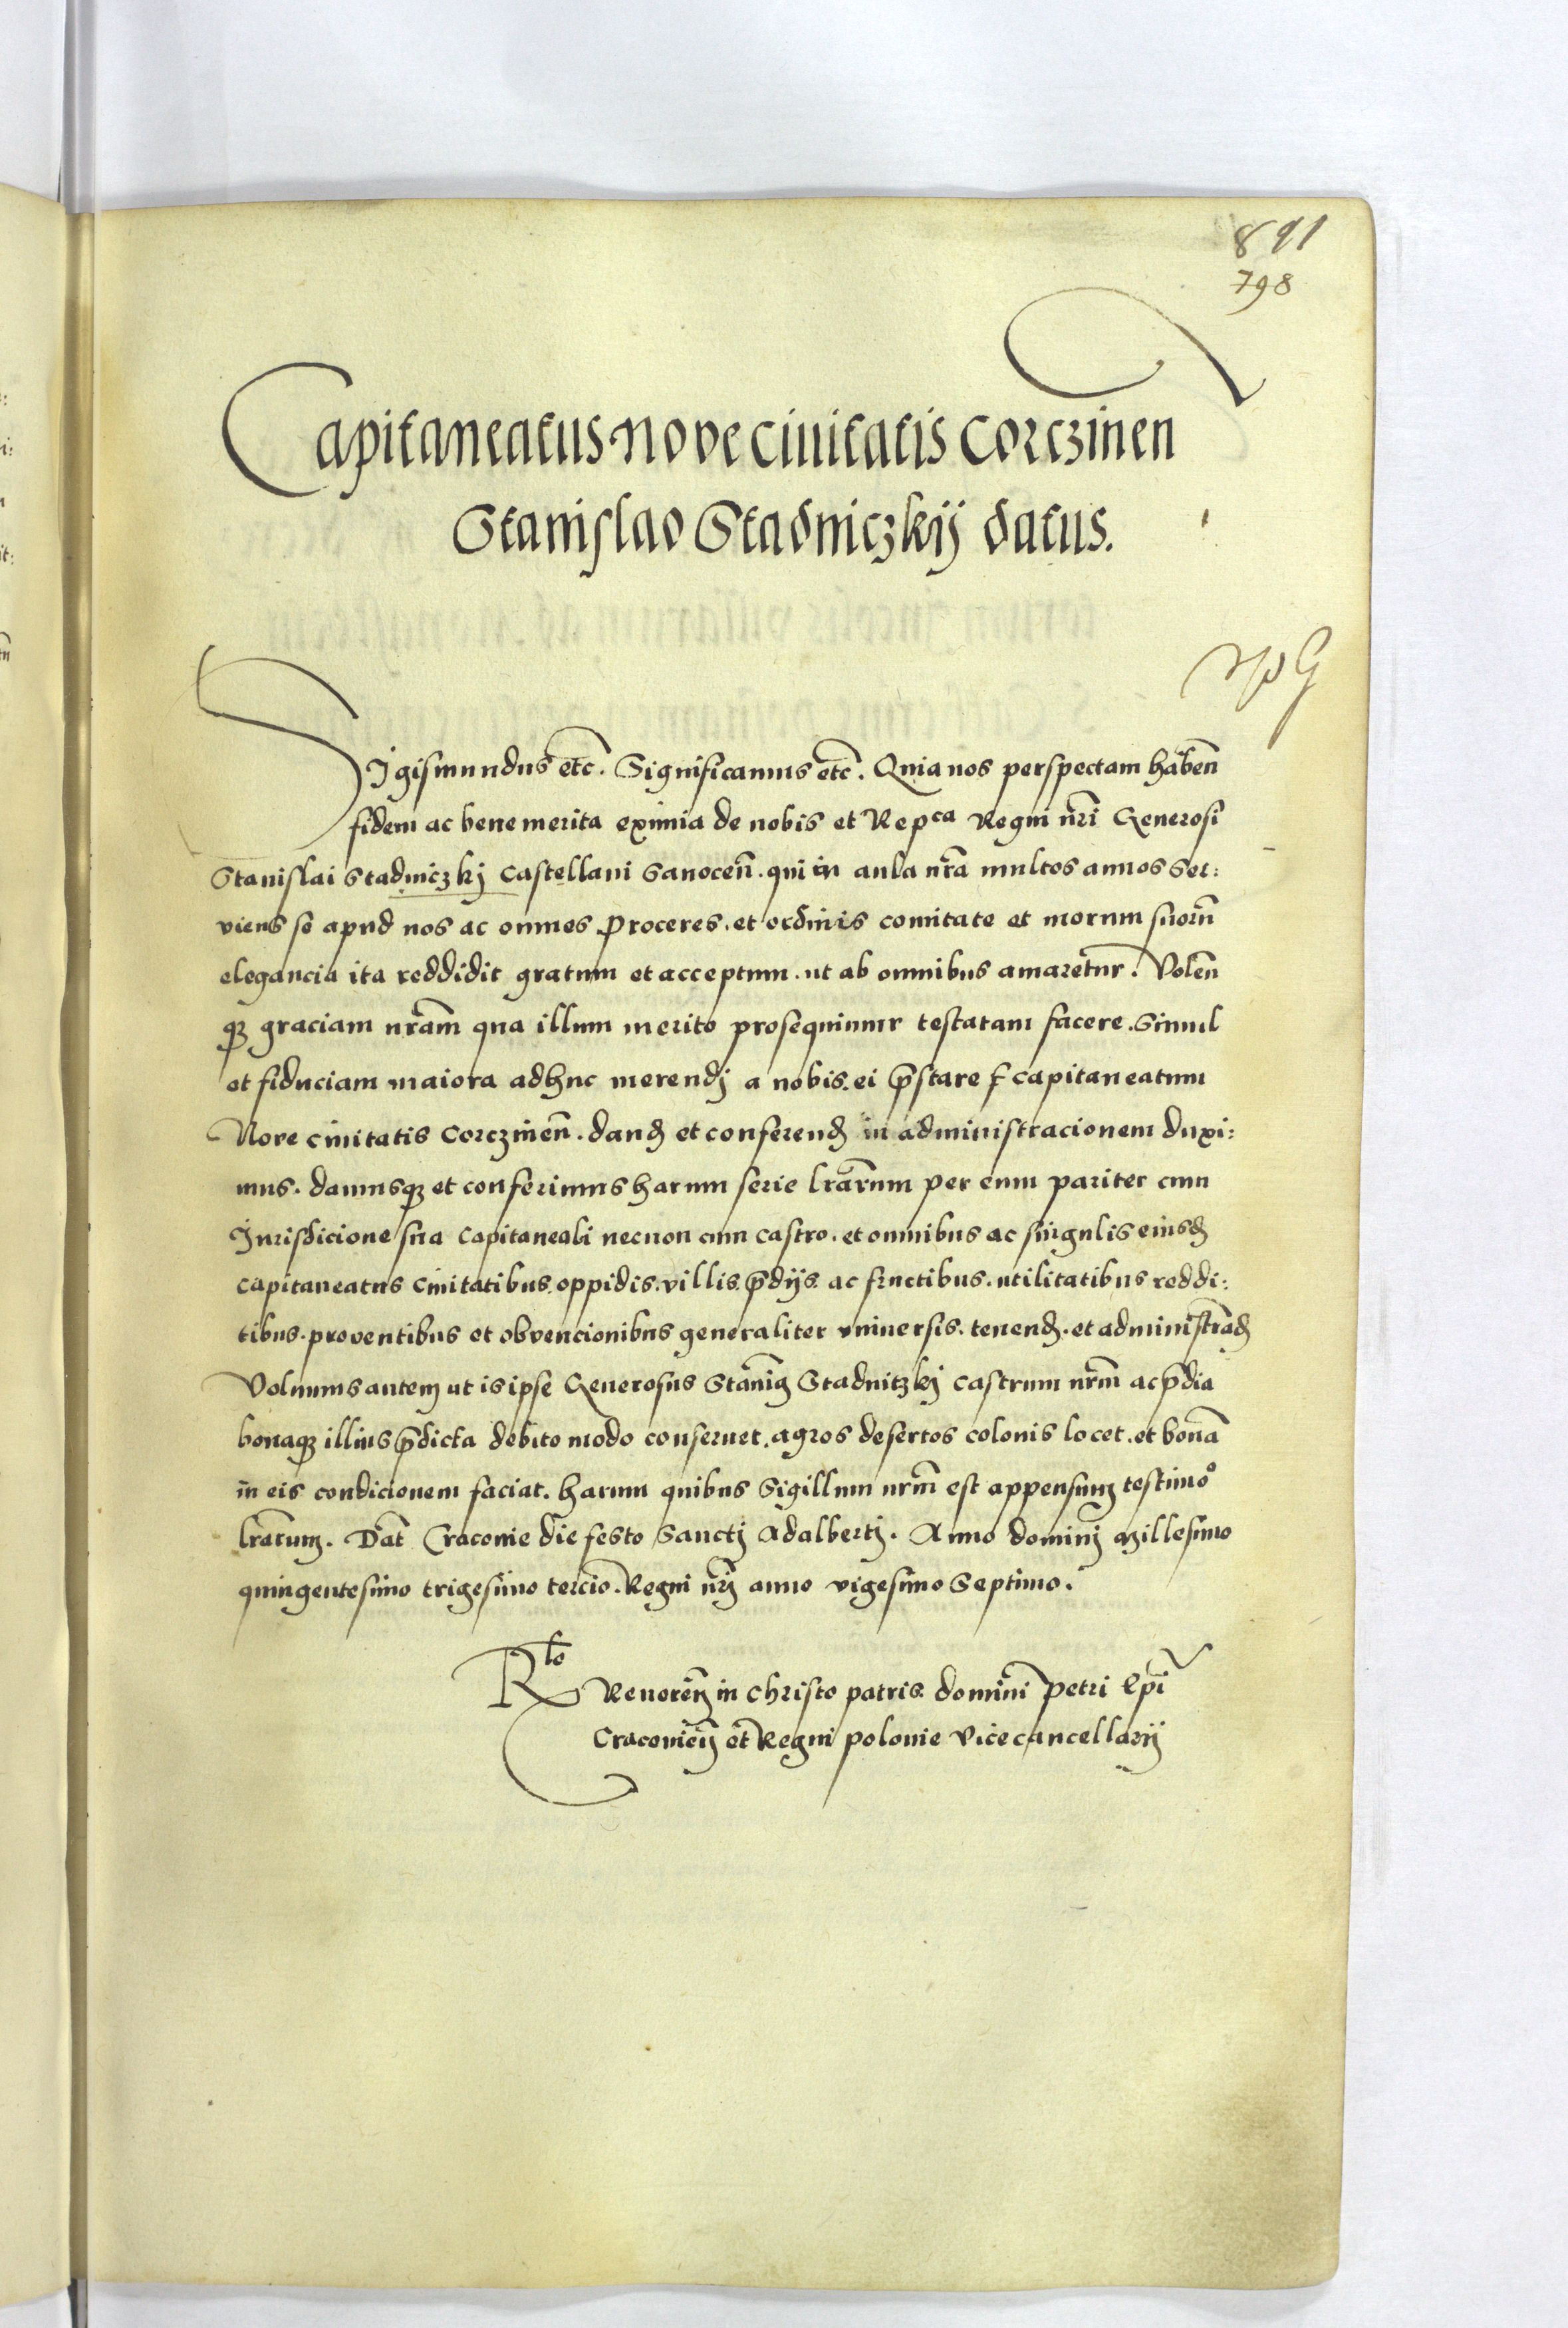 891
798
Capitaneatus nove ciuitatis Corczinen
Stanislao Stadniczkij datus.
Sigismundus etc̄. Significamus etc̄. Quia nos perspectam haben̄
fidem ac bene merita eximia de nobis et Repca Regni nr̄i Generosi
Stanislai Stadniczkj Castellani Sanocen̄. qui in aula nr̄a multos annos Ser:
viens se apud nos ac omnes proceres. et ordinis comitate et morum suorū
elegancia ita reddidit gratum et acceptum. ut ab omnibus amaretur. Volen̄
qꝫ graciam nr̄am qua illum merito prosequimur testatam facere. Simul
et fiduciam maiora adhuc merendj a nobis. ei p̄stare capitaneatum
Nove ciuitatis Corczinen̄. dand̄ et conferend̄ in administracionem duxi:
mus. damusqꝫ et conferimus harum serie lr̄arum per eum pariter cum
Jurisdicione sua Capitaneali necnon cum castro. et omnibus ac singulis eiusd̄
capitaneatus Ciuitatibus. oppidis. villis. p̄dijs. ac fructibus. utilitatibus reddi:
tibus. proventibus et obvencionibus generaliter vniuersis. tenend̄. et administrand̄
Volumus autem ut is ipse Generosus Stanis̄ Stadnitzkj castrum nr̄m ac p̄dia
bonaqꝫ illius p̄dicta debito modo conseruet. agros desertos colonis locet. et bonā
in eis condicionem faciat. harum quibus Sigillum nr̄m est appensum testimo°
lr̄arum. Dat̄ Craconie die festo Sanctj Adalbertj. Anno dominj Millesimo
quingentesimo trigesimo tercio. Regni nr̄j anno vigesimo Septimo.
Rlo
Reueren̄ in Christo patris dominī Petri Ep̄i
Craconien̄ et Regni polonie Vicecancellarij